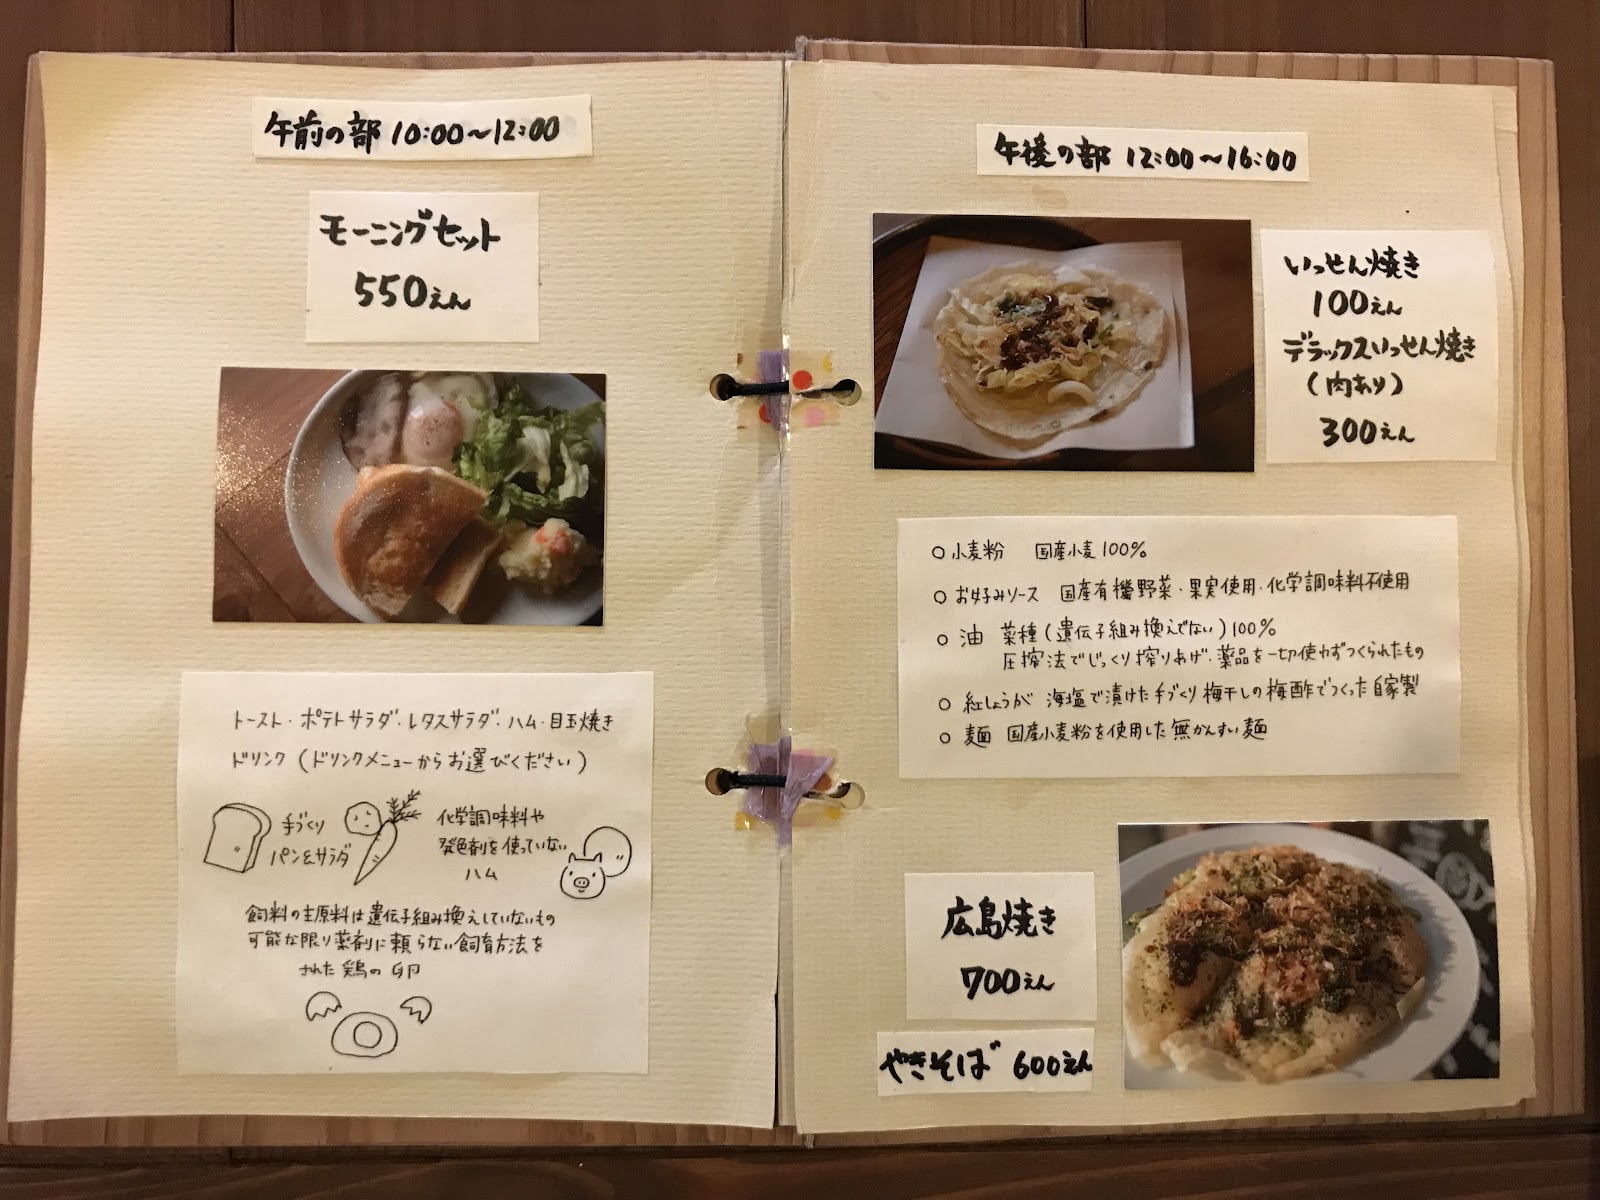 午前の部 10:00~12:00
モーニングセット
550えん
トースト・ポテトサラダ・レタスサラダ・ハム・目玉焼き
ドリンク(ドリンクメニューからお選びください)
手づくり
パン&サラダ
化学調味料や
発色剤を使っていない
ハム
飼料の主原料は遺伝子組み換えしていないもの
可能な限り薬剤に頼らない飼育方法を
された鶏の卵
午後の部 12:00~16:00
いっせん焼き
100えん
デラックスいっせん焼き
(肉あり)
300えん
○小麦粉 国産小麦100%
○お好みソース 国産有機野菜・果実使用・化学調味料不使用
○油 菜種(遺伝子組み換えでない)100%
圧搾法でじっくり搾りあげ、薬品を一切使わずつくられたもの
○紅しょうが 海塩で漬けた手づくり梅干しの梅酢でつくった自家製
○麺 国産小麦粉を使用した無かんすい麺
広島焼き
700えん
やきそば 600えん